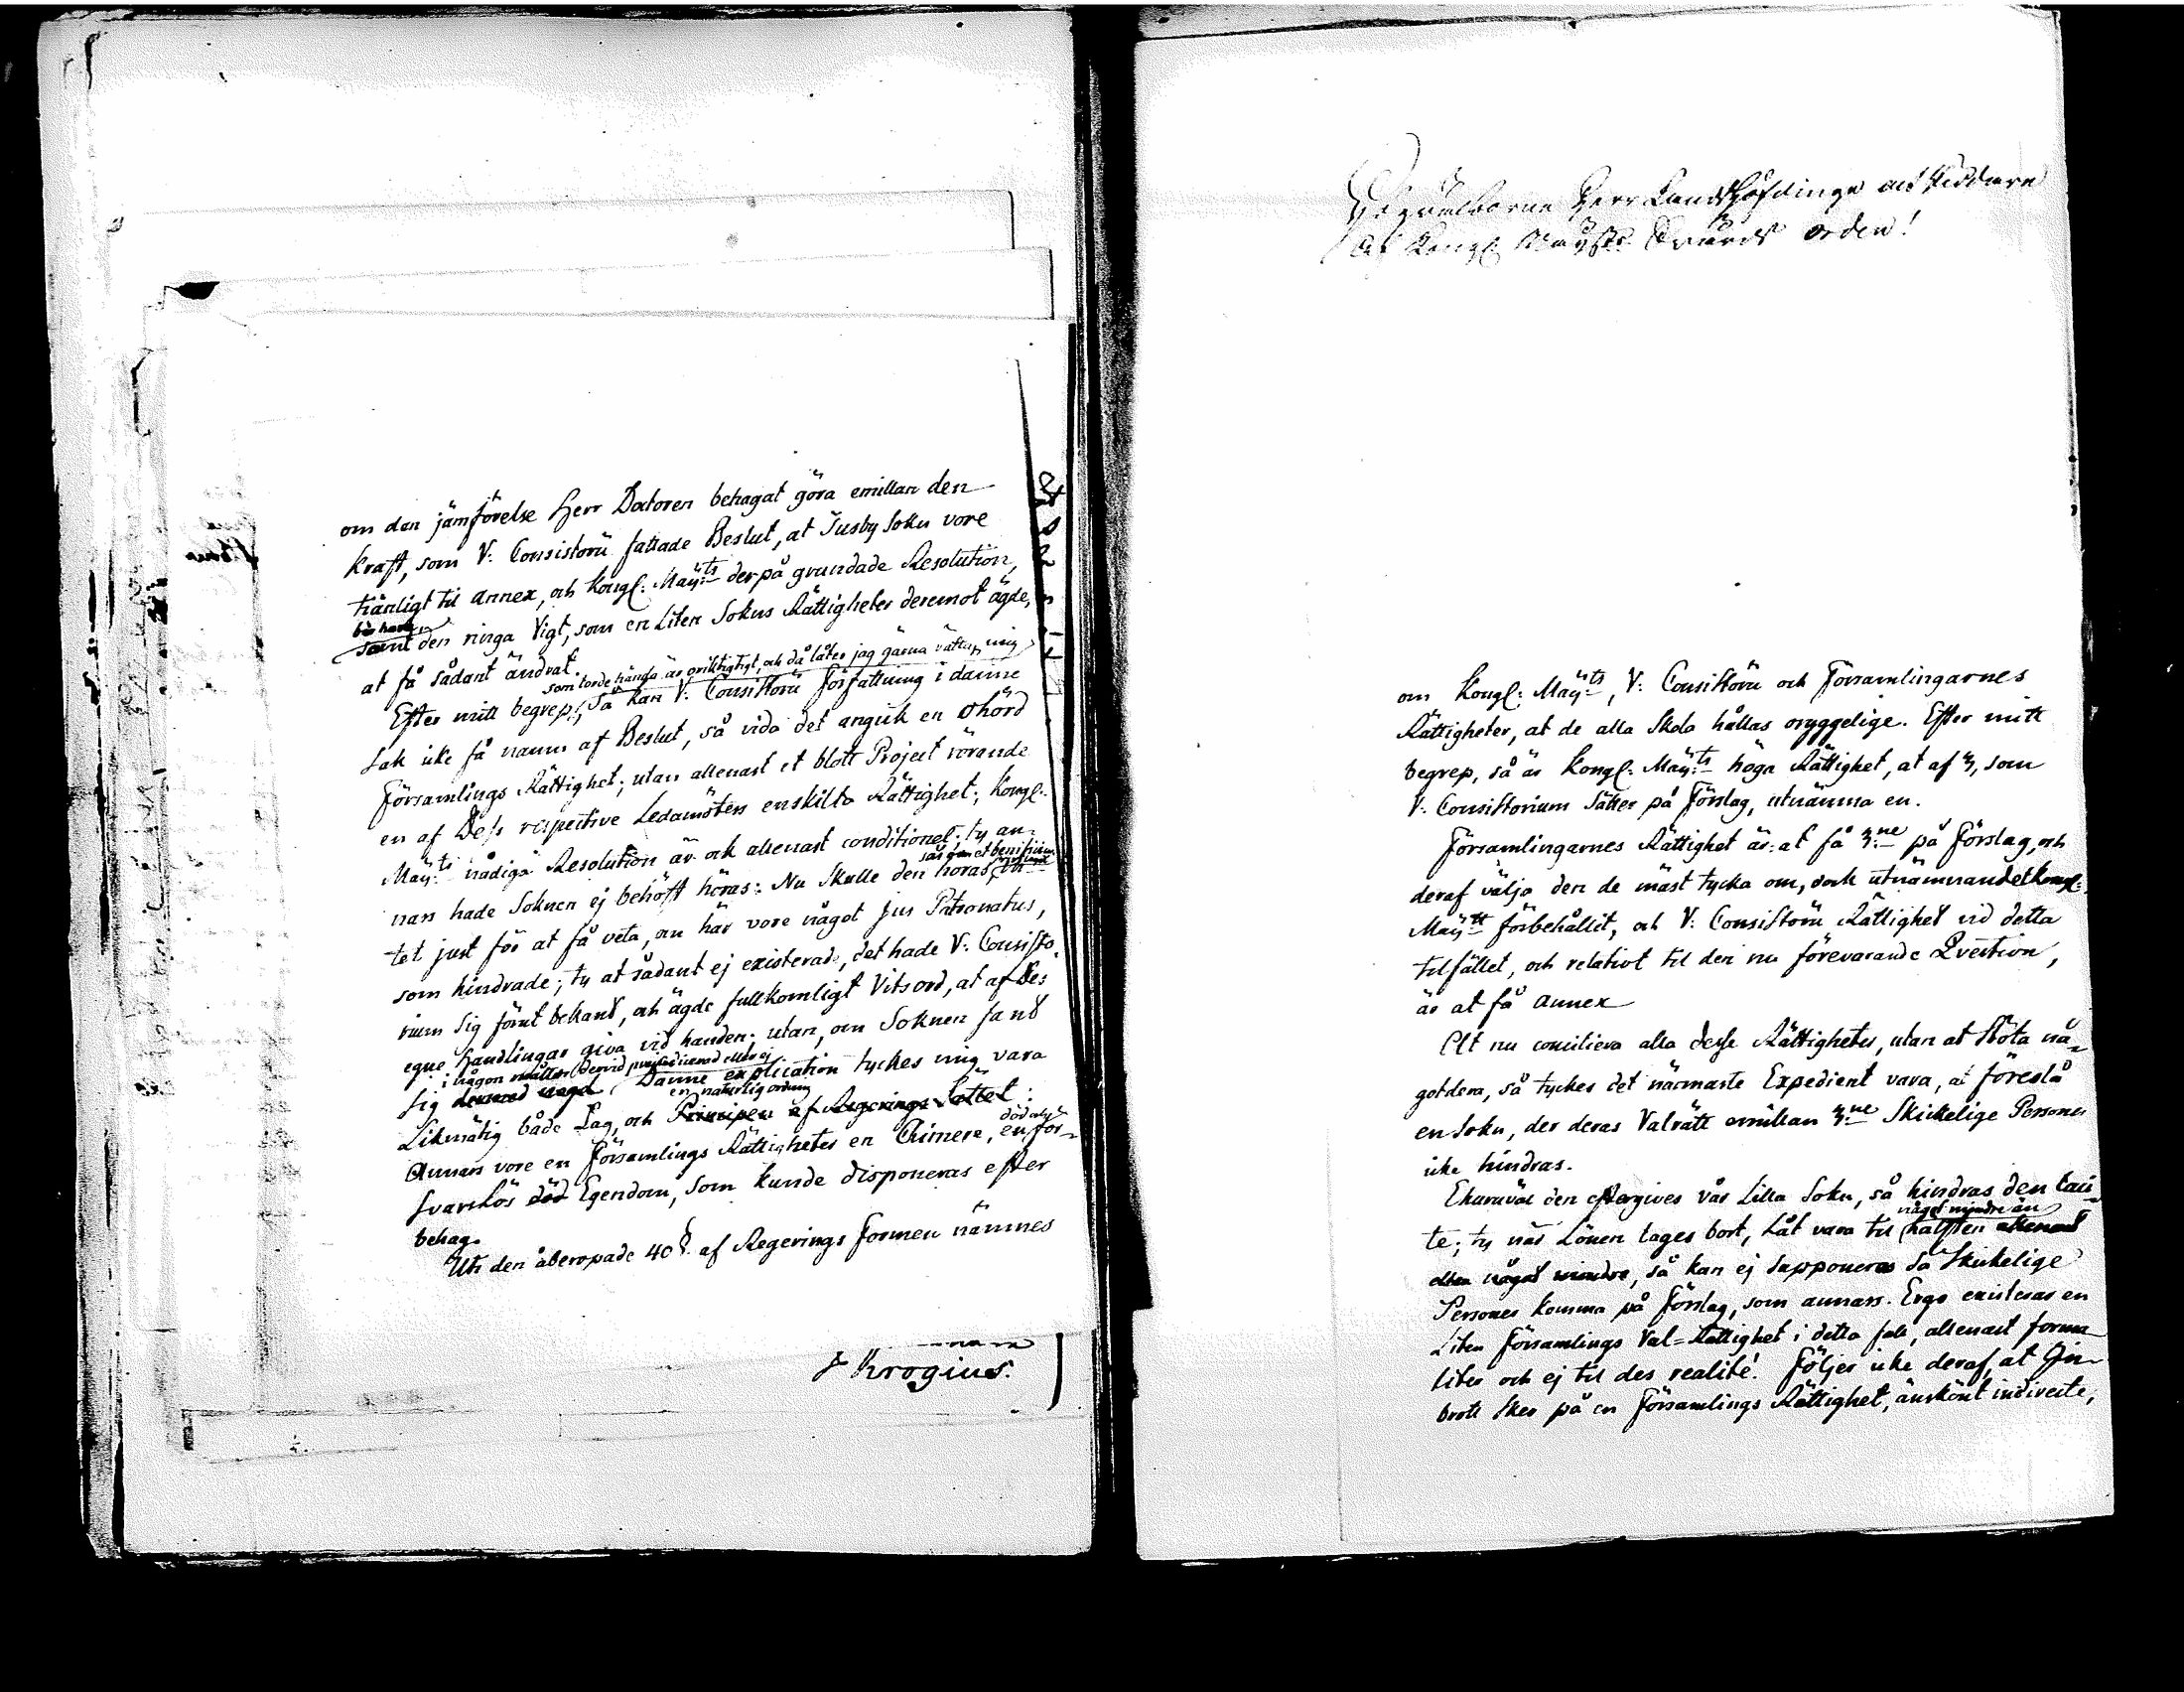 om den jämförelse Herr Doctoren behagat göra emillan den
kraft, som V: Consistorii fattade Beslut, at Tusby Sokn vore
tiänligt til annex, och Kongl: Maij:ts derpå grundade Resolution,
bör hafva
samt den ringa Vigt, som en Liten Sokns Rättigheter deremot ägde,
at få sådant ändrat.
som torde hända är oriktigtigt, och då låter jag gärna rätta mig
Efter mitt begrep, Så kan V: Consistorii författning i damne
sak icke få namn af Beslut, så vida det angick en ohörd
Församlings Rättighet; utan allenast et blott Project rörande
en af Dess respective Ledamöters enskilta Rättighet; Kongl:
Maij:ts nådiga Resolution är ock allenast conditionel; ty an-
nars hade Soknen ej behöft höras: Nu Skulle den höras,
tet just för at få veta, om här vore något jus Patronatus,
som hindrade; ty at sådant ej existerade, det hade V: Consisto
rium Sig förut bekant, och ägde fullkomligt Vitsord, at af Des
egne Handlingar giva vid handen; utan, om Soknen fand
i någon måtto dervid prejudicerad eller ej
Sig Damne explication tyckes mig vara
en naturlig ordning
Likmätig både Lag, och Principen af Regerings Sättet:
Annars vore en Församlings Rättigheter en Chimere, en för-
svarslös död Egendom, som kunde disponeras efter
behag.
Uti den åberopade 40 §. af Regerings Formen nämnes
Krogius.
Högvälborne Herr Landshöfdinge och Riddare
af Kongl Maijsts Svärds orden!
om Kongl: Maij:ts, V: Consistorii och Församlingarnes
Rättigheter, at de alla Skola hållas oryggelige. Efter mitt
begrep, så är Kongl: Maij:ts höga Rättighet, at af 3, som
V: Consistorium Sätter på Förslag, utnämna en.
Församlingarnes Rättighet är: at få 3:ne på Förslag, och
deraf välja den de mäst tycka om, dock utnämnandet Kongl:
Maij:tt förbehållit, och V: Consistorii Rättighet vid detta
tilfället, och relativt til den nu förevarande Qvestion,
är at få annex
At nu conciliera alla desse Rättigheter, utan at Stöta nå-
gotdera, så tyckes det närmaste Expedient vara, at föreslå
en Sokn, der deras Valrätt emillan 3:ne Skickelige Personer
icke hindras.
Ehuruväl den eftergives vår Lilla Sokn, så hindras den taci-
något mindre än
te; ty när Lönen tages bort, Låt vara til hälften allenast
eller något mindre, så kan ej supponeras Så Skickelige
Personer komma på Förslag, som annars. Ergo existerar en
Liten Församlings Val-Rättighet i detta fall, allenast forma-
liter och ej til des realité! Följer icke deraf, at In-
brott Sker på en Församlings Rättighet, änskönt indirecte,